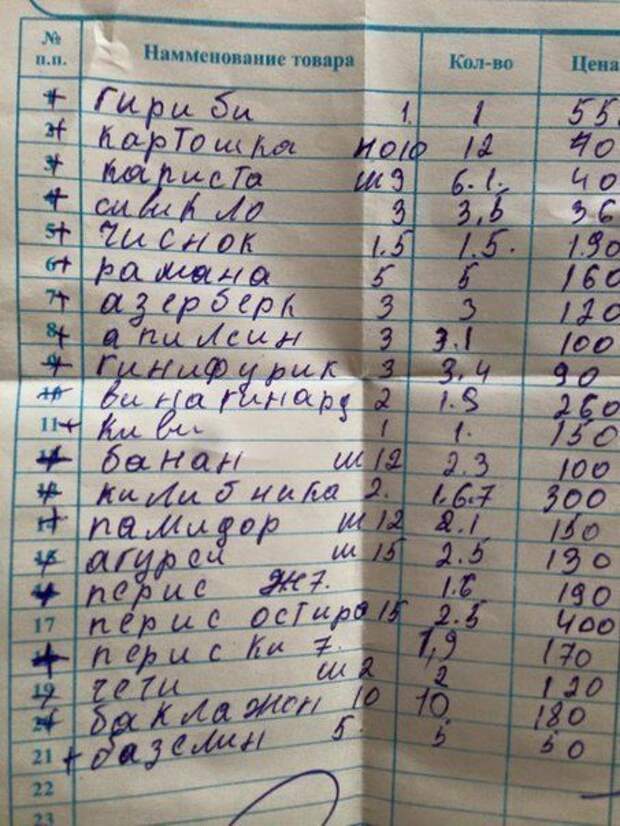 № п.п. Намменование товара Кол-во Цена
1 гириби 1. 1 55
2 картошка но10 12 40
3 каписта ш3 6.1. 40
4 сивикло 3 3,5 36
5 чиснок 1.5 1.5. 190
6 рамана 5 5 160
7 азерберк 3 3 120
8 апилсин 3 3.1 100
9 гинифурик 3 3.4 90
10 винагинард 2 1.9 260
11 киви 1 1. 150
12 банан ш12 2.3 100
13 килибника 2. 1.6.7 300
14 памидор ш12 2.1 150
15 агурси ш15 2.5 130
перис ж7. 1.6 190
17 перис остиро 15 2.5 400
перис ки 7. 1,9 170
19 чети ш2 2 120
баклажон 10 10 180
21 базелин 5. 5 50
22
23